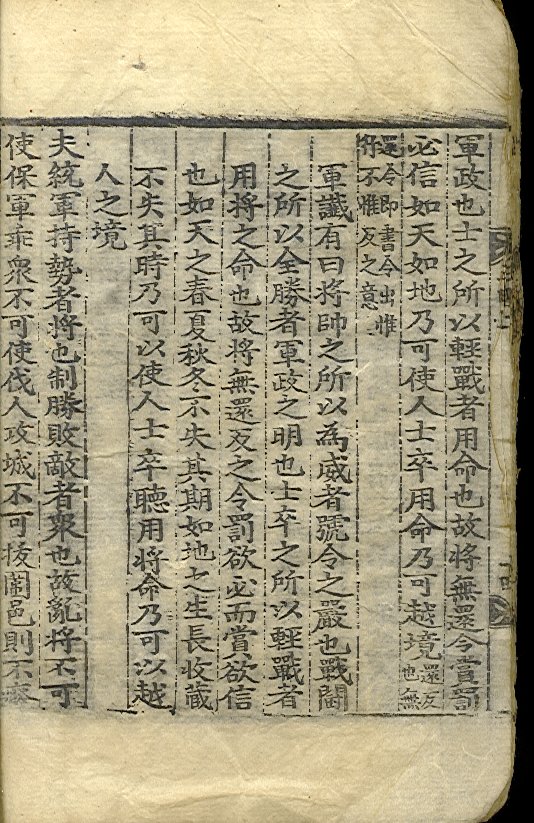 軍政也士之所以輕戰者用命也故將無還令賞罰
必信如天如地乃可使人士卒用命乃可越境還反也無
還令即書令出惟
將不惟反之意
軍讖有曰將帥之所以為威者號令之嚴也戰鬪
之所以全勝者軍政之明也士卒之所以輕戰者
用將之命也故將無還反之令罰欲必而賞欲信
也如天之春夏秋冬不失其期如地之生長收藏
不失其時乃可以使人士卒聽用將命乃可以越
人之境
夫統軍持勢者將也制勝敗敵者衆也故亂將不可
使保軍乖衆不可使伐人攻城不可拔圖邑則不廢